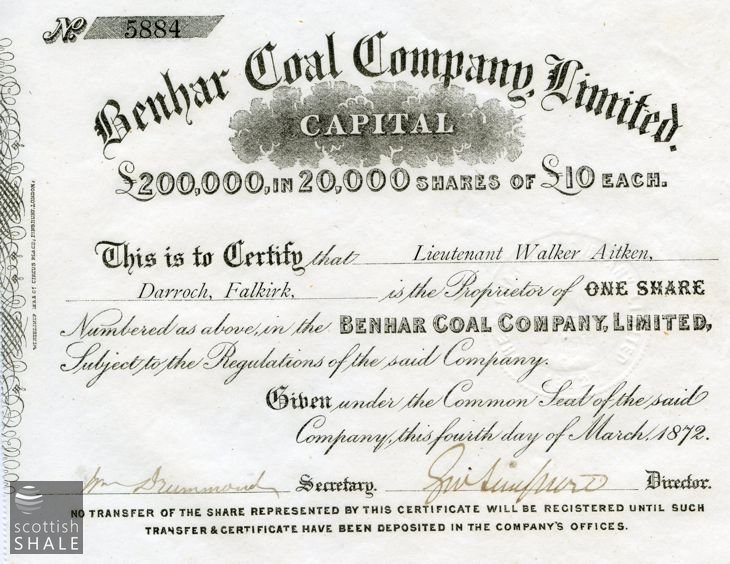 No. 5884
Benhar Coal Company, Limited.
CAPITAL
£200,000, IN 20,000 SHARES OF £10 EACH.
This is to Certify that Lieutenant Walker Aitken,
Darroch, Falkirk, is the Proprietor of ONE SHARE
Numbered as above, in the BENHAR COAL COMPANY, LIMITED,
Subject to the Regulations of the said Company.
Given under the Common Seal of the said
Company, this fourth day of March, 1872.
Wm Drummond Secretary. Director.
NO TRANSFER OF THE SHARE REPRESENTED BY THIS CERTIFICATE WILL BE REGISTERED UNTIL SUCH
TRANSFER & CERTIFICATE HAVE BEEN DEPOSITED IN THE COMPANY'S OFFICES.
scottish
SHALE